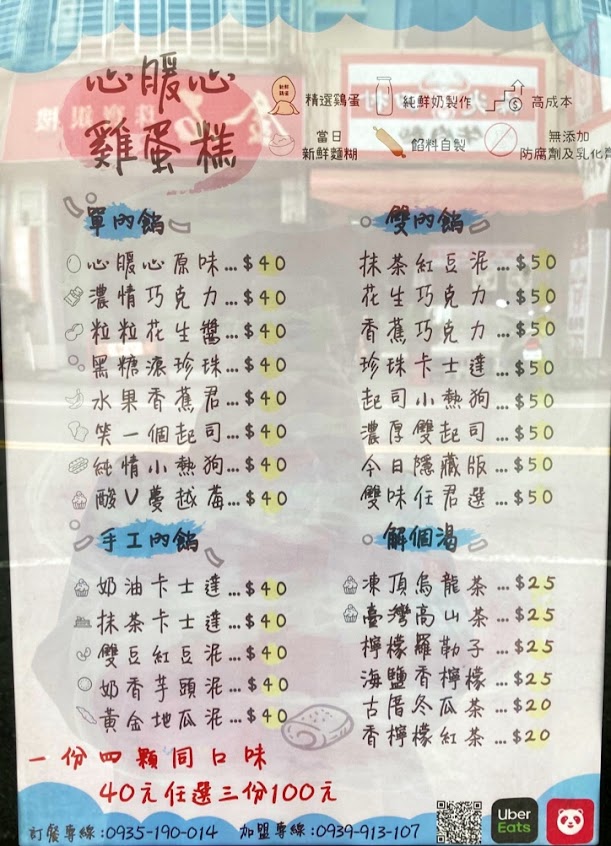 心暖心
雞蛋糕
精選鷄蛋
純鮮奶製作
高成本
當日
新鮮麵糊
餡料自製
無添加
防腐劑及乳化劑
單內餡
心暖心原味...$40
濃情巧克力...$40
粒粒花生醬...$40
黑糖滾珍珠...$40
水果香蕉君...$40
笑一個起司...$40
純情小熱狗...$40
酸V蔓越莓...$40
手工內餡
奶油卡士達...$40
抹茶卡士達...$40
雙豆紅豆泥...$40
奶香芋頭泥...$40
黃金地瓜泥...$40
雙內餡
抹茶紅豆泥...$50
花生巧克力...$50
香蕉巧克力...$50
珍珠卡士達...$50
起司小熱狗...$50
濃厚雙起司...$50
今日隱藏版...$50
雙味任君選...$50
解個渴
凍頂烏龍茶...$25
臺灣高山茶...$25
檸檬羅勒子...$25
海鹽香檸檬...$25
古厝冬瓜茶...$20
香檸檬紅茶...$20
一份四顆同口味
40元任選三份100元
訂餐專線:0935-190-014 加盟專線:0939-913-107
Uber
Eats